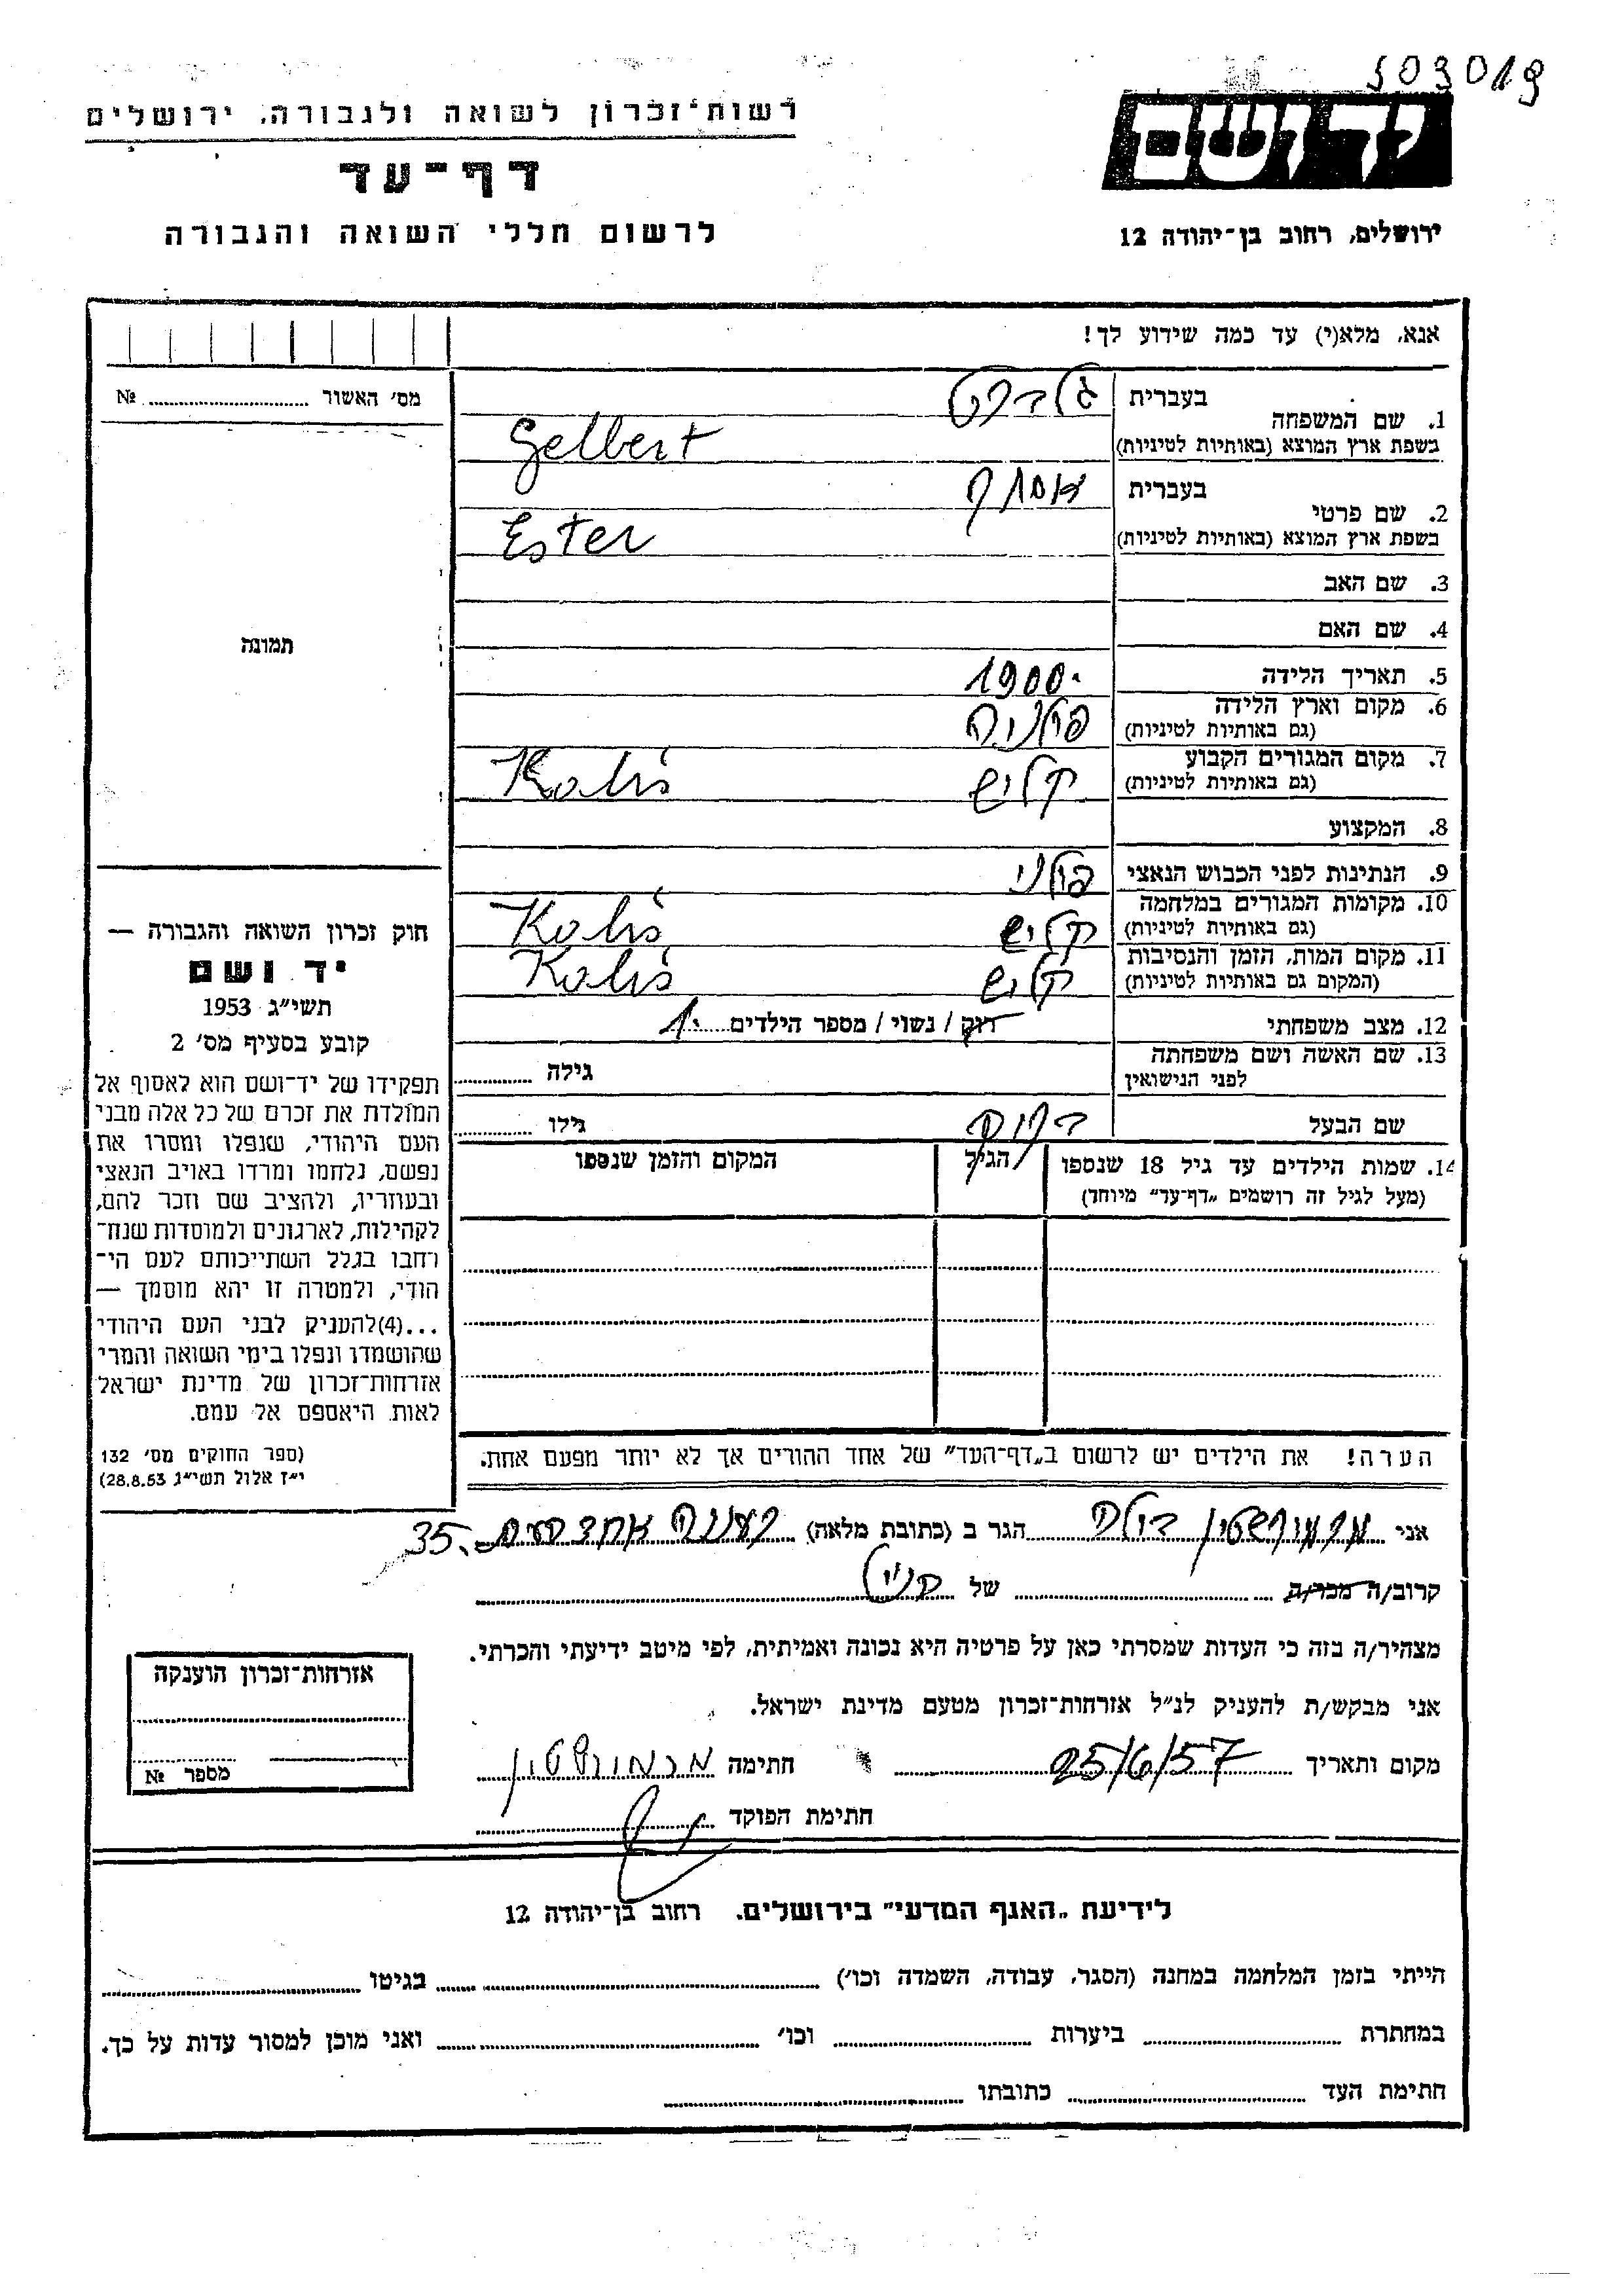 503019
רשות־זכרון לשואה ולגבורה, ירושלים
יד ושם
דף־עד
לרשום חללי השואה והגבורה
ירושלים, רחוב בן־יהודה 12
אנא, מלא(י) עד כמה שידוע לך!
מס׳ האשור № 
1. שם המשפחה
בעברית גלברט
בשפת ארץ המוצא (באותיות לטיניות) Gelbert
2. שם פרטי
בעברית אסתר
בשפת ארץ המוצא (באותיות לטיניות) Ester
3. שם האב
4. שם האם
תמונה
5. תאריך הלידה 1900
6. מקום וארץ הלידה
(גם באותיות לטיניות) פולניה
7. מקום המגורים הקבוע
(גם באותיות לטיניות) קליש Kaliś
8. המקצוע
9. הנתינות לפני הכבוש הנאצי פולני
10. מקומות המגורים במלחמה
(גם באותיות לטיניות) קליש Kaliś
11. מקום המות, הזמן והנסיבות
(המקום גם באותיות לטיניות) קליש Kaliś
12. מצב משפחתי רוק / נשוי / מספר הילדים 1
13. שם האשה ושם משפחתה
לפני הנישואין גילה
שם הבעל גילו
14. שמות הילדים עד גיל 18 שנספו הגיל המקום והזמן שנספו
(מעל לגיל זה רושמים „דף־עד״ מיוחד)
הערה! את הילדים יש לרשום ב„דף־העד״ של אחד ההורים אך לא יותר מפעם אחת.
חוק זכרון השואה והגבורה —
יד ושם
תשי״ג 1953
קובע בסעיף מס׳ 2
תפקידו של יד־ושם הוא לאסוף אל
המולדת את זכרם של כל אלה מבני
העם היהודי, שנפלו ומסרו את
נפשם, נלחמו ומרדו באויב הנאצי
ובעוזריו, ולהציב שם וזכר להם,
לקהילות, לארגונים ולמוסדות שנח־
רחבו בגלל השתייכותם לעם הי־
הודי, ולמטרה זו יהא מוסמך —
...(4)להעניק לבני העם היהודי
שהושמדו ונפלו בימי השואה והמרי
אזרחות־זכרון של מדינת ישראל
לאות היאספם אל עמם.
(ספר החוקים מס׳ 132
י״ז אלול תשי״ג 28.8.53)
אני הגר ב (כתובת מלאה) רעננה 35
קרוב/ה מכר/ה של
מצהיר/ה בזה כי העדות שמסרתי כאן על פרטיה היא נכונה ואמיתית, לפי מיטב ידיעתי והכרתי.
אני מבקש/ת להעניק לנ״ל אזרחות־זכרון מטעם מדינת ישראל.
מקום ותאריך 25/6/57 חתימה
חתימת הפוקד
אזרחות־זכרון הוענקה
מספר №
לידיעת „האגף המדעי״ בירושלים, רחוב בן־יהודה 12
הייתי בזמן המלחמה במחנה (הסגר, עבודה, השמדה וכו׳) בגיטו
במחתרת ביערות וכו׳ ואני מוכן למסור עדות על כך.
חתימת העד כתובתו